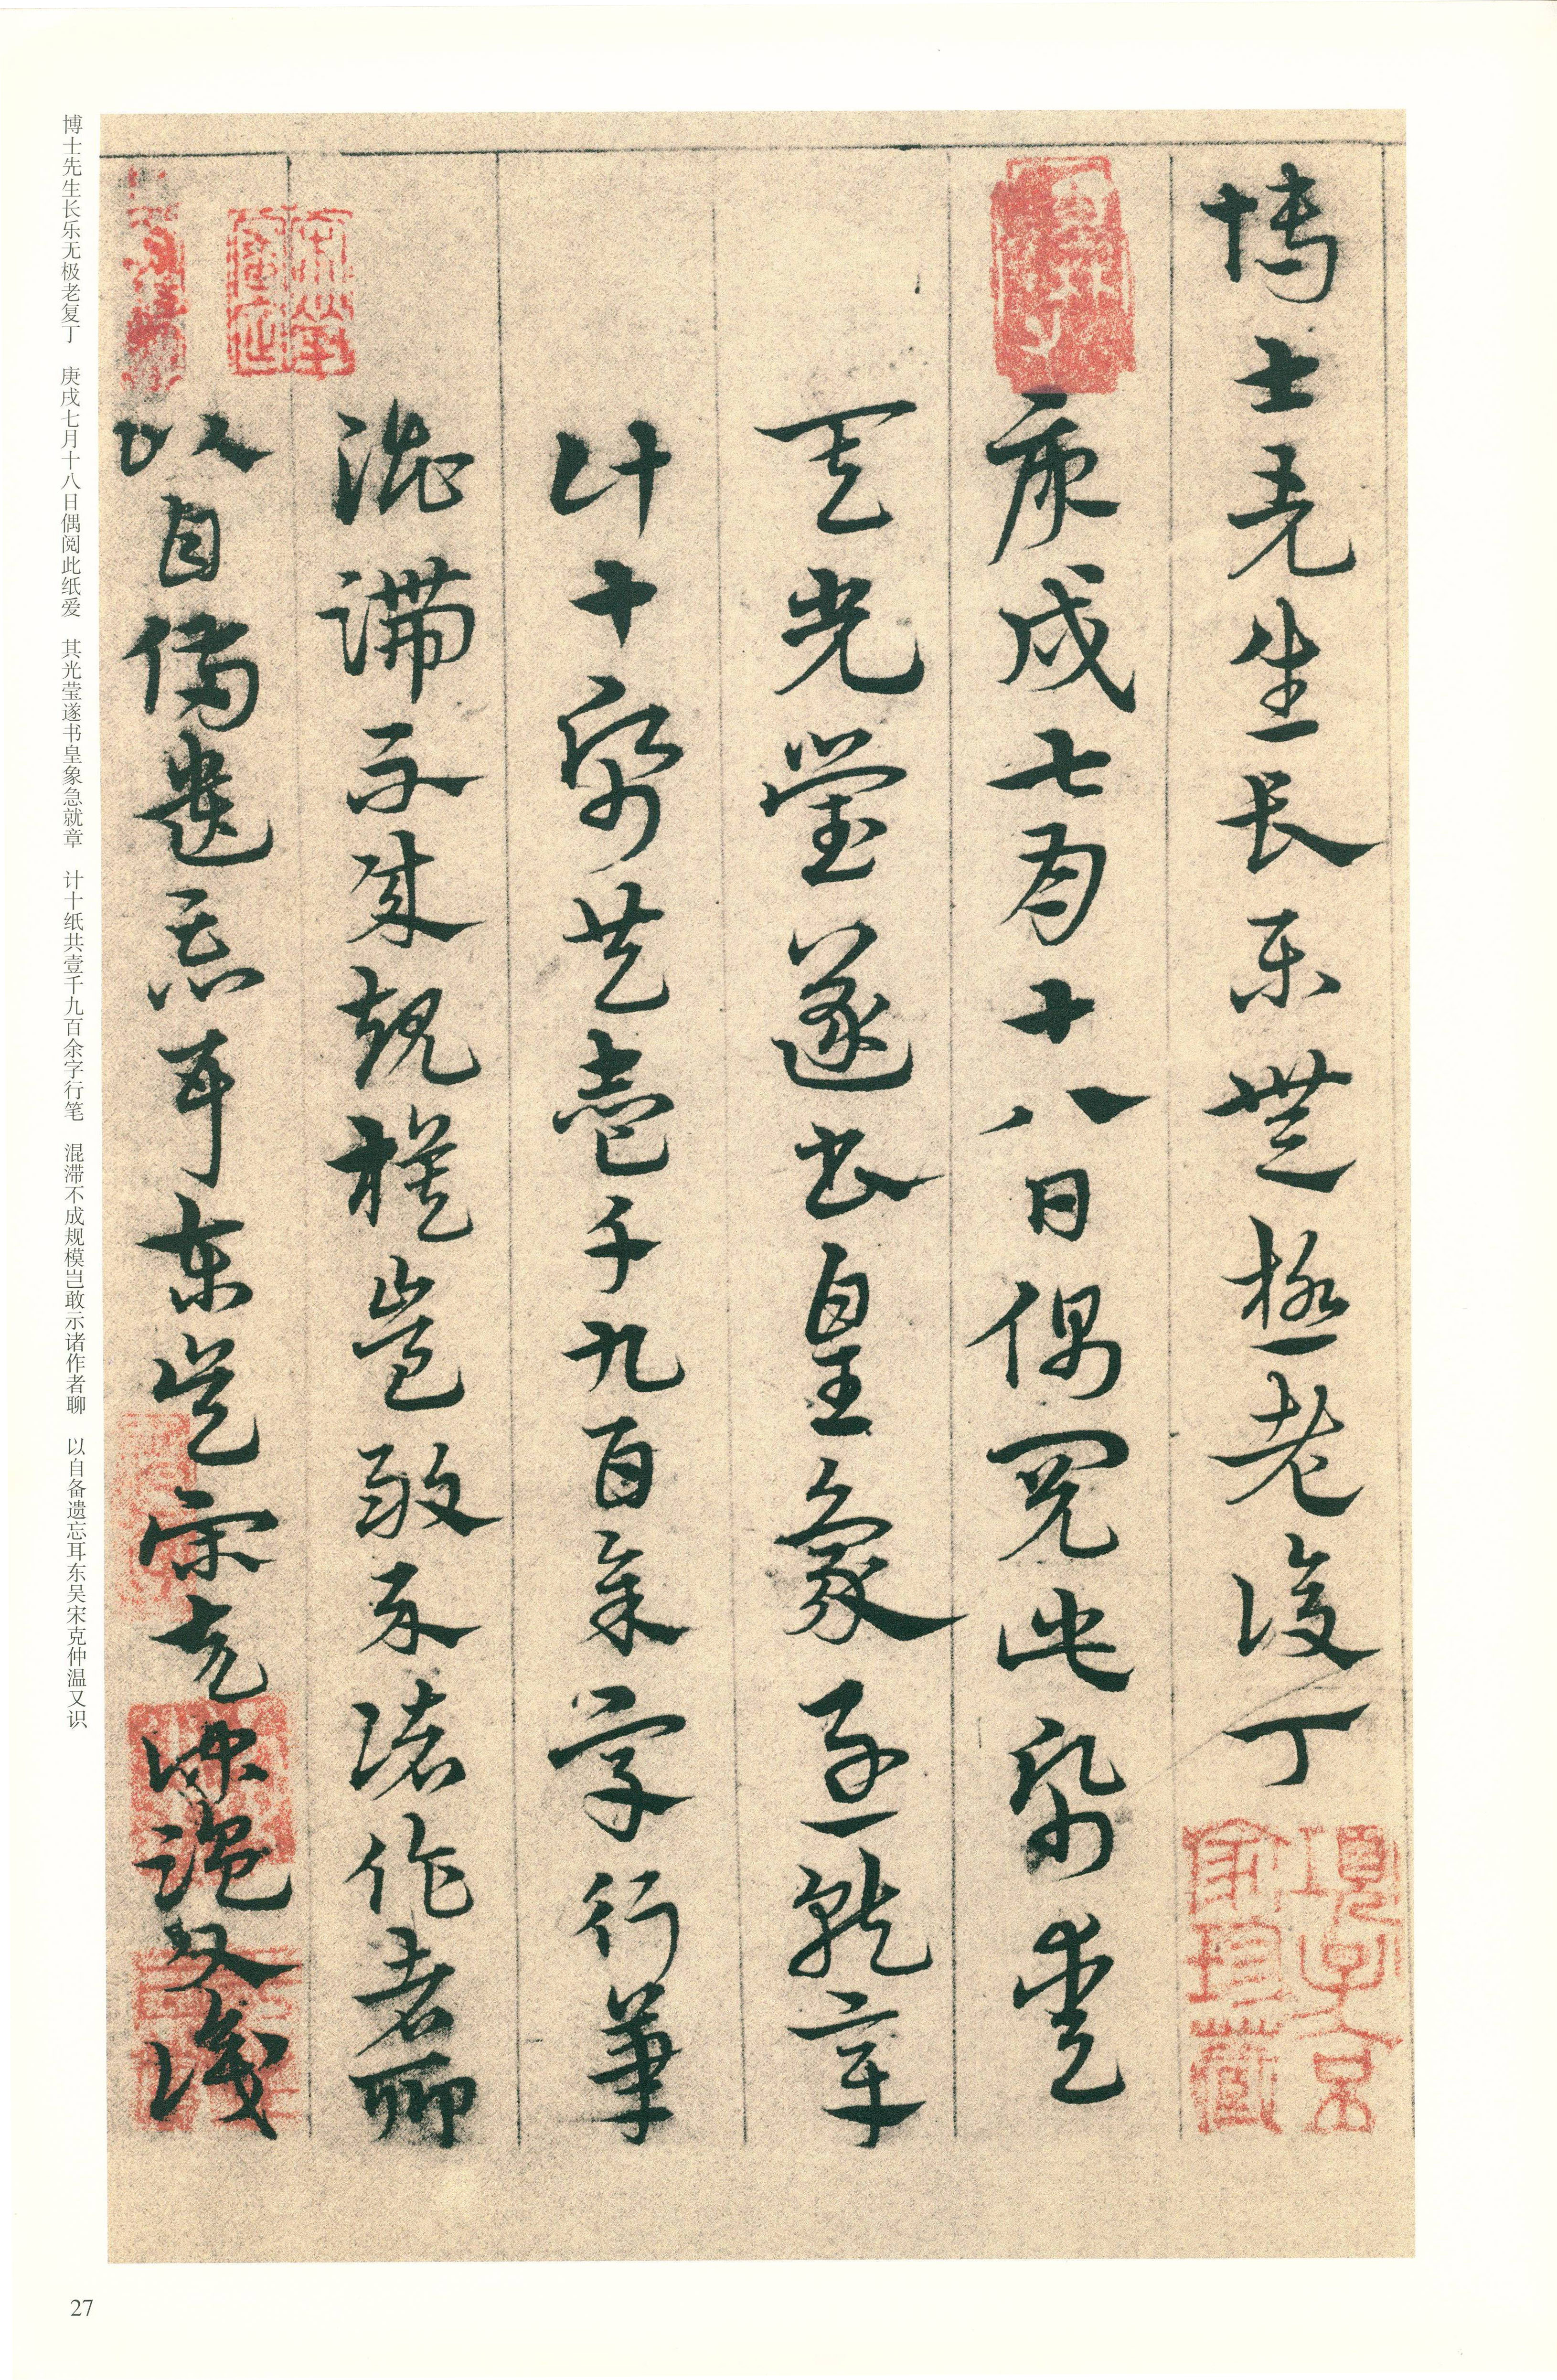 博士先生長樂無極老復丁
庚戌七月十八日偶閱此紙愛
其光瑩遂書皇象急就章
計十紙共壹千九百餘字行筆
混滯不成規模豈敢示諸作者聊
以自備遺忘耳東吳宋克仲溫又識
項子京
家珍藏
博士先生长乐无极老复丁 庚戌七月十八日偶阅此纸爱 其光莹遂书皇象急就章 计十纸共壹千九百余字行笔 混滞不成规模岂敢示诸作者聊 以自备遗忘耳东吴宋克仲温又识
27